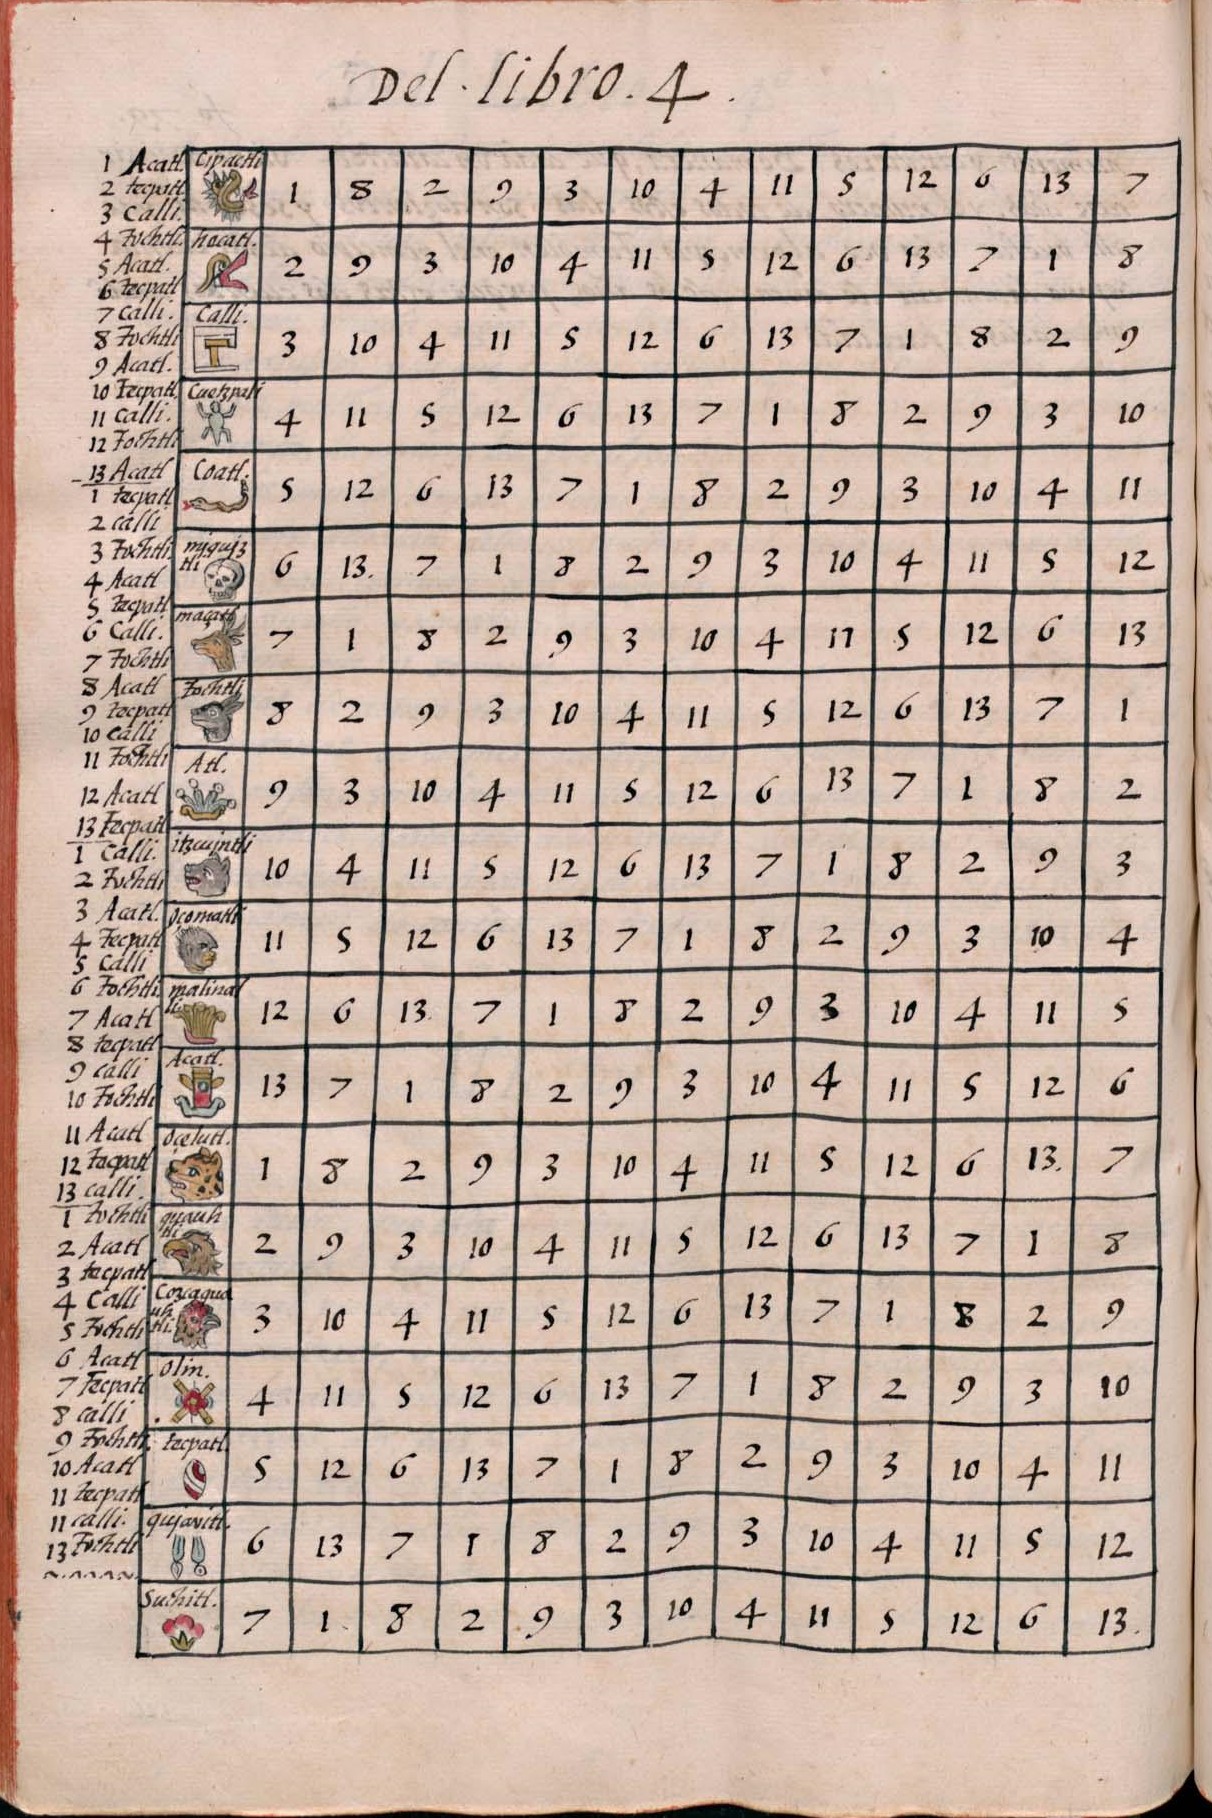 Del. libro. 4.
1 Acatl
2 tecpatl
3 Calli.
4 Tochtli.
5 Acatl.
6 tecpatl
7 Calli.
8 Tochtli
9 Acatl.
10 Tecpatl.
11 Calli.
12 Tochtli
13 Acatl
1 tecpatl
2 calli
3 Tochtli
4 Acatl
5 tecpatl
6 Calli.
7 Tochtli
8 Acatl
9 tecpatl
10 calli
11 Tochtli
12 Acatl
13 Tecpatl
1 Calli.
2 Tochtli
3 Acatl.
4 Tecpatl
5 Calli
6 Tochtli.
7 Acatl
8 tecpatl
9 calli
10 Tochtli
11 Acatl
12 Tecpatl
13 calli.
1 Tochtli
2 Acatl
3 tecpatl
4 Calli
5 Tochtli
6 Acatl
7 Tecpatl
8 calli
9 Tochtli
10 Acatl
11 tecpatl
11 calli.
13 Tochtli
Cipactli
1 8 2 9 3 10 4 11 5 12 6 13 7
hecatl.
2 9 3 10 4 11 5 12 6 13 7 1 8
Calli.
3 10 4 11 5 12 6 13 7 1 8 2 9
Cuetzpali
4 11 5 12 6 13 7 1 8 2 9 3 10
Coatl.
5 12 6 13 7 1 8 2 9 3 10 4 11
mjqujz
tli
6 13. 7 1 8 2 9 3 10 4 11 5 12
maçatl
7 1 8 2 9 3 10 4 11 5 12 6 13
Tochtli
8 2 9 3 10 4 11 5 12 6 13 7 1
Atl.
9 3 10 4 11 5 12 6 13 7 1 8 2
itzcujntli
10 4 11 5 12 6 13 7 1 8 2 9 3
Oçomatli
11 5 12 6 13 7 1 8 2 9 3 10 4
malinal
li
12 6 13 7 1 8 2 9 3 10 4 11 5
Acatl.
13 7 1 8 2 9 3 10 4 11 5 12 6
Ocelutl.
1 8 2 9 3 10 4 11 5 12 6 13. 7
quauh
tli
2 9 3 10 4 11 5 12 6 13 7 1 8
Cozcaqua
uh
tli.
3 10 4 11 5 12 6 13 7 1 8 2 9
olin.
4 11 5 12 6 13 7 1 8 2 9 3 10
tecpatl.
5 12 6 13 7 1 8 2 9 3 10 4 11
qujavitl.
6 13 7 1 8 2 9 3 10 4 11 5 12
Suchitl.
7 1 8 2 9 3 10 4 11 5 12 6 13.